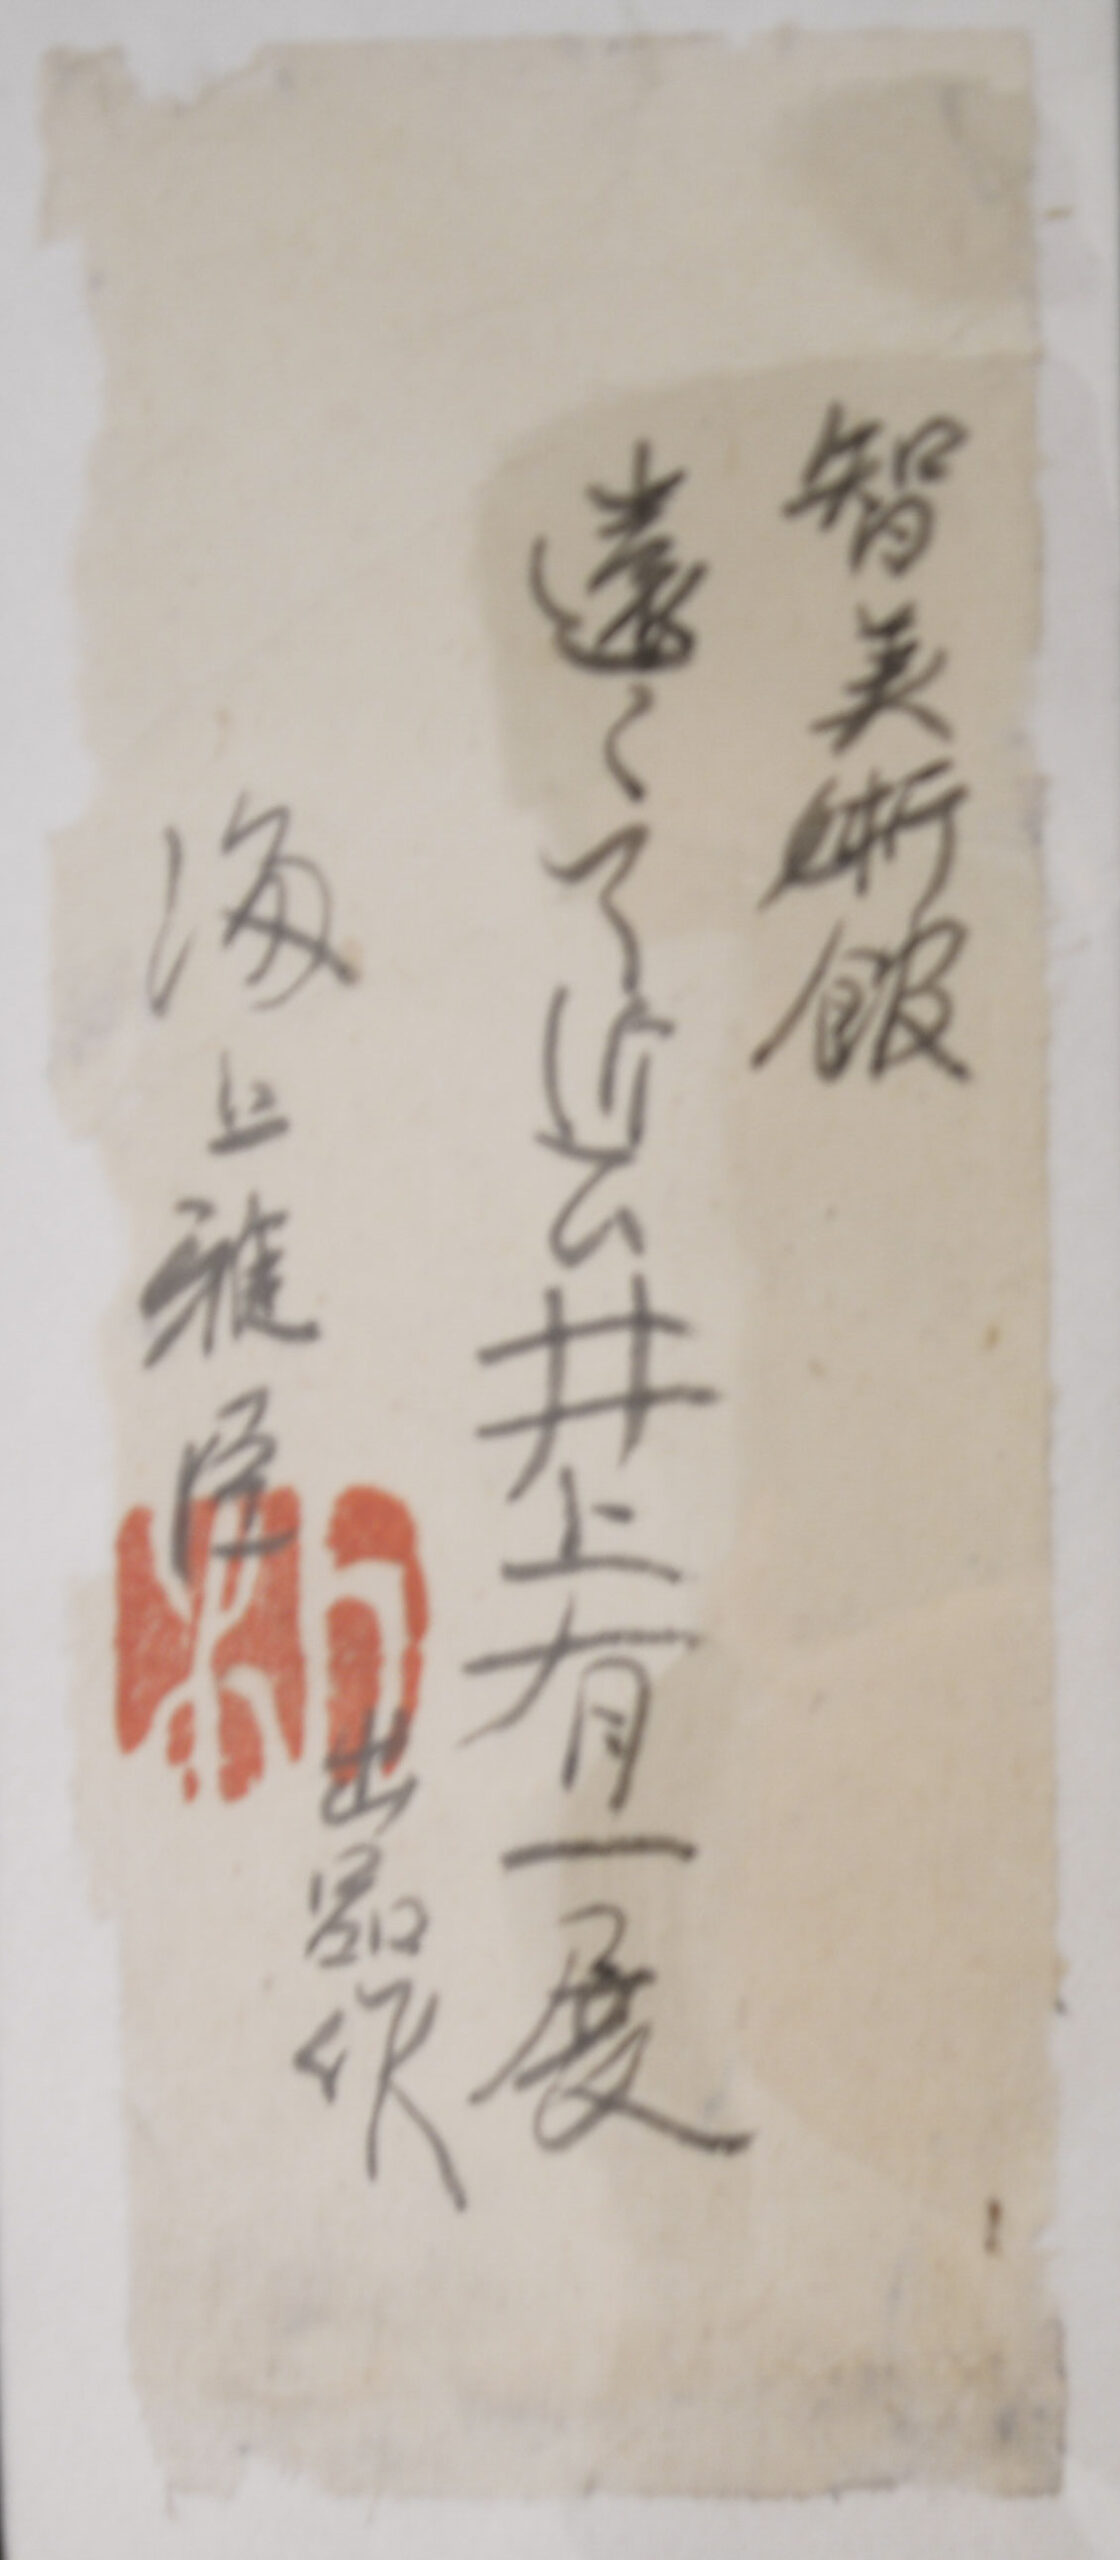 智美術館
遠くて近い井上有一展
出品作
海上雅臣